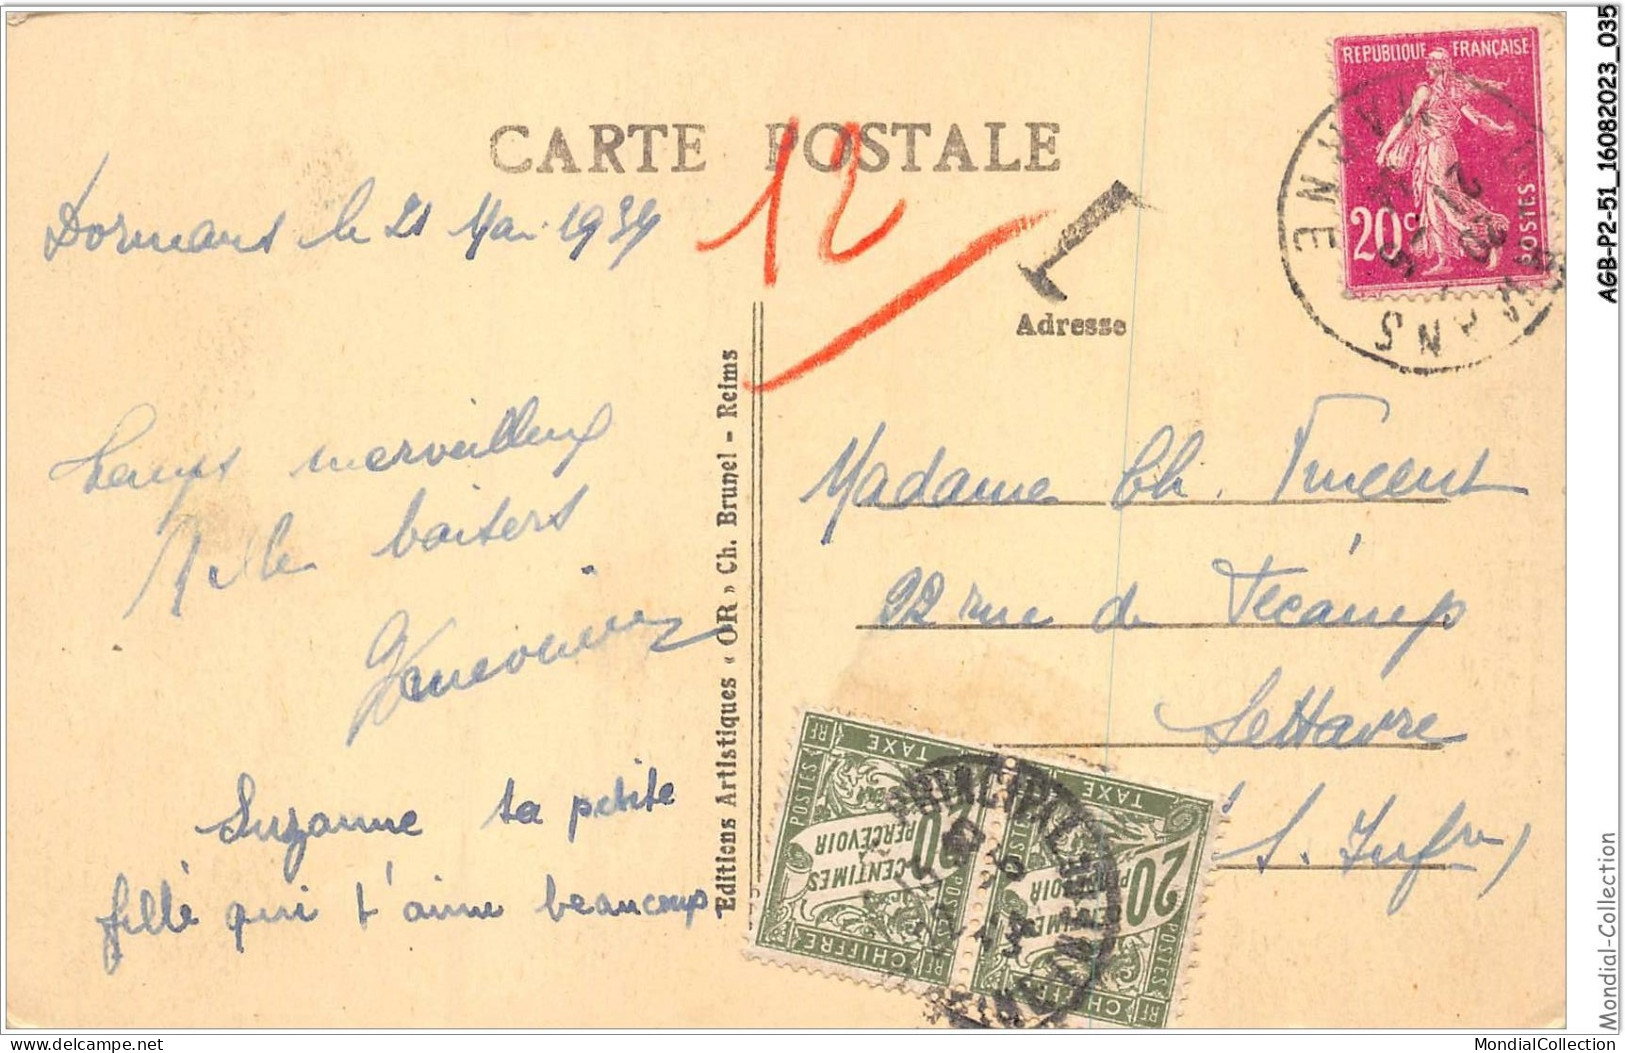 CARTE POSTALE
Dormans le 21 Mai 1934
12
T
Adresse
temps merveilleux
Mille baisers
Geneviève
Suzanne ta petite
fille qui t'aime beaucoup
Editions Artistiques « OR » Ch. Brunel - Reims
Madame Ch. Vincent
22 rue de Fécamp
Le Havre
S. Infre
REPUBLIQUE FRANÇAISE
20c
POSTES
DORMANS
MARNE
RF TAXE
POSTES
CENTIMES
À
PERCEVOIR
CHIFFRE RF
TAXE
20
CHIFFRE RF
POSTES
AGB-P2-51_16082023_035
Mondial-Collection
delcampe.net
MondialCollection